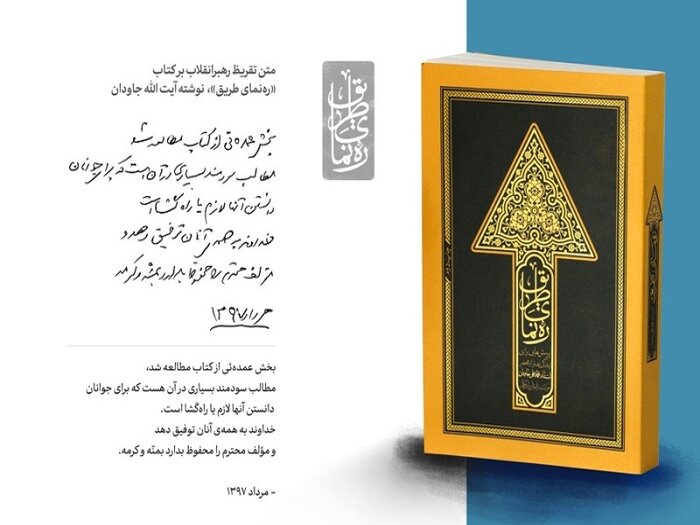 متن تقریظ رهبر انقلاب بر کتاب
«ره‌نمای طریق»، نوشته آیت الله جاودان
ره‌نمای طریق
بخش عمده‌ئی از کتاب مطالعه شد
مطالب سودمند بسیاری در آن هست که برای جوانان
دانستن آنها لازم یا راه‌گشا است
خداوند به همه‌ی آنان توفیق دهد و
مؤلف محترم را محفوظ بدارد بمنّه و کرمه
مرداد ۱۳۹۷
بخش عمده‌ئی از کتاب مطالعه شد،
مطالب سودمند بسیاری در آن هست که برای جوانان
دانستن آنها لازم یا راه‌گشا است.
خداوند به همه‌ی آنان توفیق دهد
و مؤلف محترم را محفوظ بدارد بمنّه و کرمه.
- مرداد ۱۳۹۷
ره‌نمای طریق